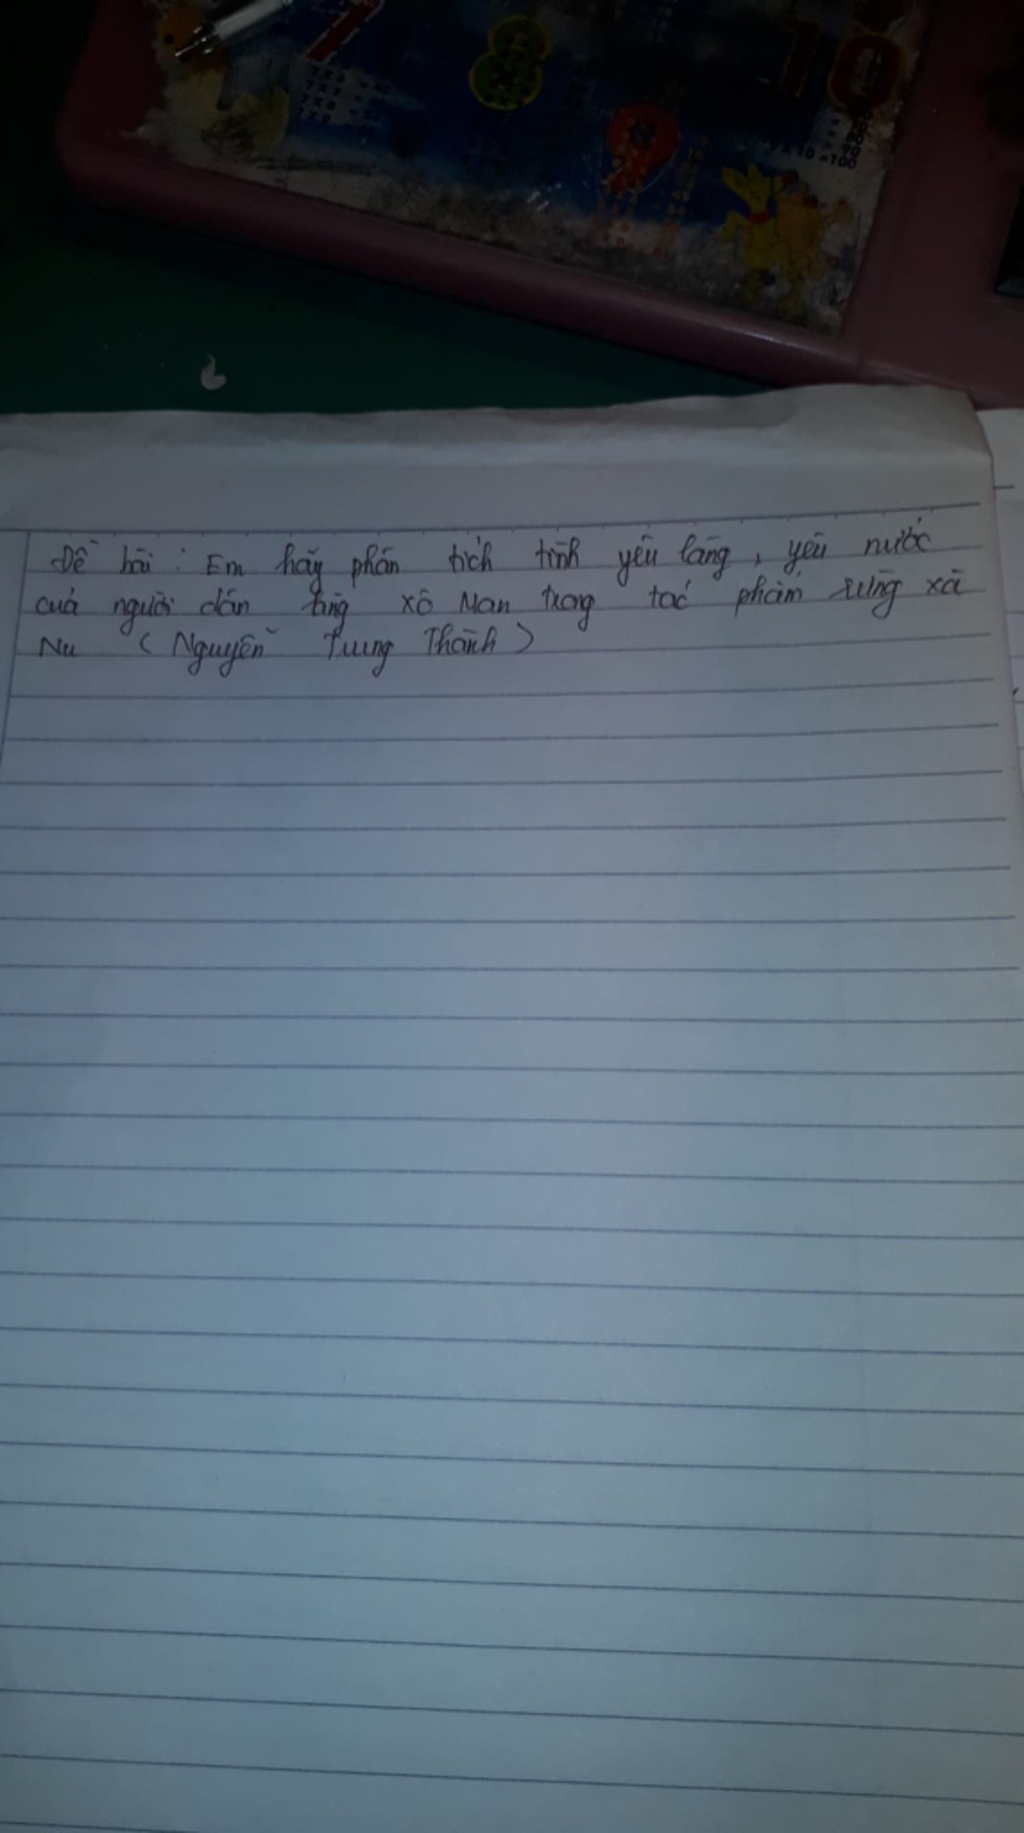 7
8
10
9
10 = 100
Đề bài : Em hãy phân tích tình yêu làng, yêu nước
của người dân làng xô Man trong tác phẩm rừng xà
Nu ( Nguyễn Trung Thành )